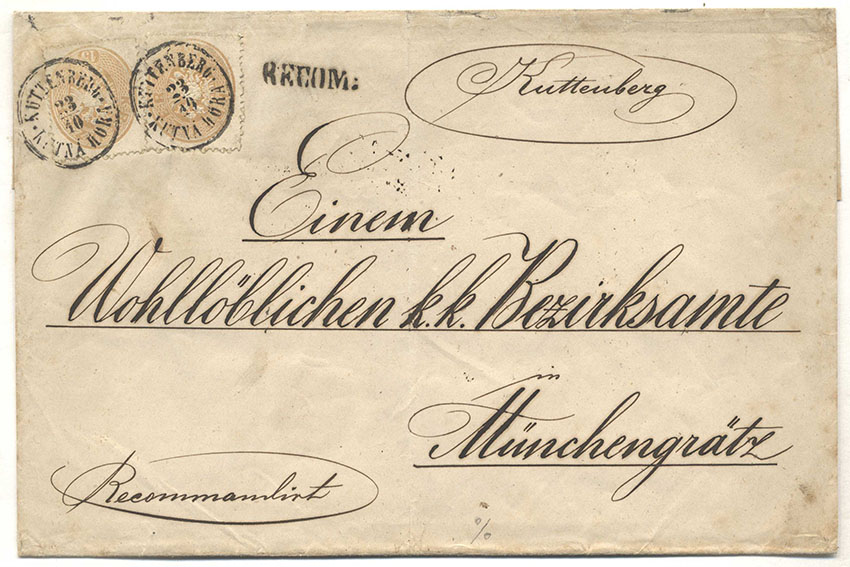 KUTTENBERG
KUTNÁ HORA
23
10
KUTTENBERG
KUTNÁ HORA
23
10
15
RECOM:
Kuttenberg
Einem
Wohllöblichen k.k. Bezirksamte
in
Münchengrätz
Recommandirt
%